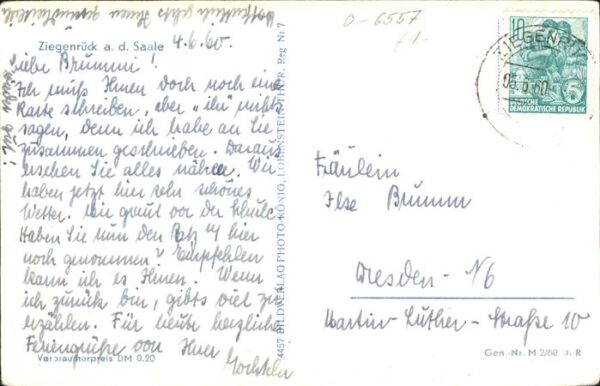 Hoffentlich gehts Ihnen gesundheitlich
wieder gut!
Ziegenrück a. d. Saale 4.6.60.
Liebe Brummi!
Ich muß Ihnen doch noch eine
Karte schreiben, aber "ihr" nichts
sagen, denn ich habe an Sie
zusammen geschrieben. Daraus
ersehen Sie alles nähere. Wir
haben jetzt hier sehr schönes
Wetter. Mir graut vor der Schule.
Haben Sie nun den Platz hier
noch genommen? Empfehlen
kann ich es Ihnen. Wenn
ich zurück bin, gibts viel zu
erzählen. Für heute herzliche
Feriengrüße von Ihrer
Verbraucherpreis DM 0.20
4457 BILD VERLAG PHOTO-KÖNIG, LOBENSTEIN-THÜR. Reg Nr 7
0-6557
10
ZIEGENRÜCK
6.60
DEUTSCHE
DEMOKRATISCHE REPUBLIK
Fräulein
Ilse Brumm
Dresden - N6
Martin-Luther-Straße 10
Gen.-Nr. M 2/60 R